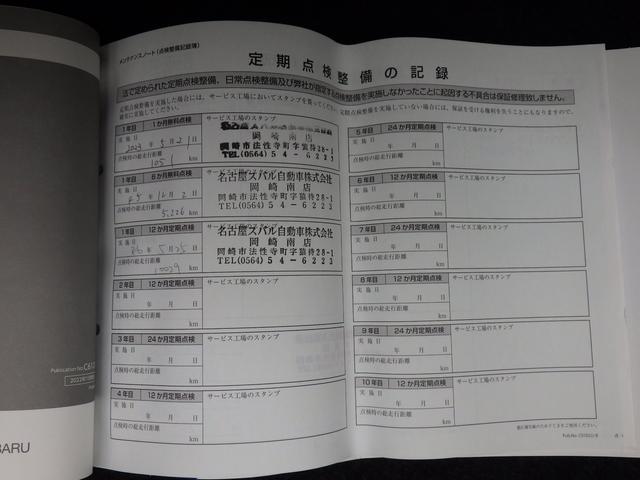 メンテナンスノート(点検整備記録簿)
定期点検整備の記録
法で定められた定期点検整備、日常点検整備及び弊社が指定する点検整備を実施しなかったことに起因する不具合は保証修理致しません。
定期点検整備を実施した場合には、サービス工場においてスタンプを
定期点検整備を実施していない場合には、保証を受ける権利を失うことにもなりますので、
確実に実施してください。
1年目 1か月無料点検
サービス工場のスタンプ
実施日
年 5月21日
点検時の総走行距離
1051 km
岡崎南店
岡崎市法性寺町字猿待28-1
TEL(0564)54-6223
1年目 6か月無料点検
サービス工場のスタンプ
実施日
年 月 2日
点検時の総走行距離
5,226 km
名古屋スバル自動車株式会社
岡崎南店
岡崎市法性寺町字猿待28-1
TEL(0564)54-6223
1年目 12か月定期点検
サービス工場のスタンプ
実施日
年 5月25日
点検時の総走行距離
10029 km
名古屋スバル自動車株式会社
岡崎南店
岡崎市法性寺町字猿待28-1
TEL(0564)54-6223
2年目 12か月定期点検
サービス工場のスタンプ
実施日
年 月 日
点検時の総走行距離
km
3年目 24か月定期点検
サービス工場のスタンプ
実施日
年 月 日
点検時の総走行距離
km
4年目 12か月定期点検
サービス工場のスタンプ
実施日
年 月 日
点検時の総走行距離
km
5年目 24か月定期点検
サービス工場のスタンプ
実施日
年 月 日
点検時の総走行距離
km
6年目 12か月定期点検
サービス工場のスタンプ
実施日
年 月 日
点検時の総走行距離
km
7年目 24か月定期点検
サービス工場のスタンプ
実施日
年 月 日
点検時の総走行距離
km
8年目 12か月定期点検
サービス工場のスタンプ
実施日
年 月 日
点検時の総走行距離
km
9年目 24か月定期点検
サービス工場のスタンプ
実施日
年 月 日
点検時の総走行距離
km
10年目 12か月定期点検
サービス工場のスタンプ
実施日
年 月 日
点検時の総走行距離
km
Publication No.
BARU